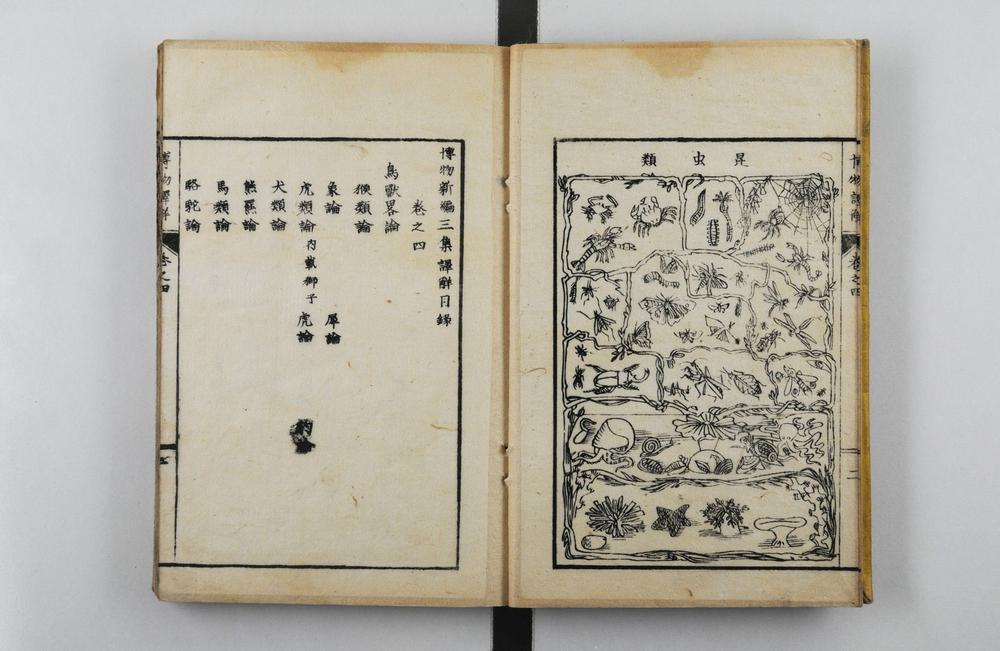 博物譯解　卷之四
昆虫類
博物新編三集譯解目録
卷之四
鳥獸畧論
猴類論
象論　犀論
虎類論　内載獅子　虎論
犬類論
熊羆論
馬類論
駱駝論